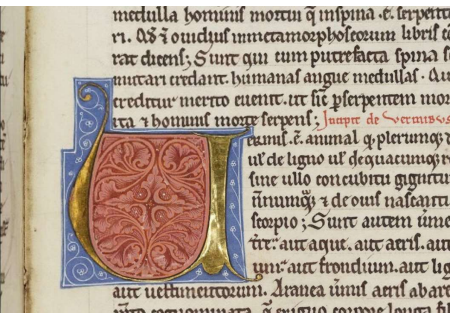 medulla hominis mortui q̄ inspina .ē. serpent
ri. Qd̄ ⁊ ouidius inmetamorphoseorum libris cō
rat dicens; Sunt qui cum putrefacta spina s
mutari credant. humanas angue medullas. Qu
creditur merito euenit. ut sic p̱serpentem mor
ita ⁊ hominis morte serpens; Incipit de vermibus
Uermis .ē. animal q̱ plerumq; d
ul' de ligno ul' de quacumq;
sine ullo concubitu gignun
nūnumq̱; ⁊ de ouis nascunt
scorpio; Sunt autem ūme
trē. aut aque. aut aeris. aut
um. aut frondium. aut lig
aut uestimentorum. Aranea ūmis aeris ab aere
cognominata exiguo corpore longa fil